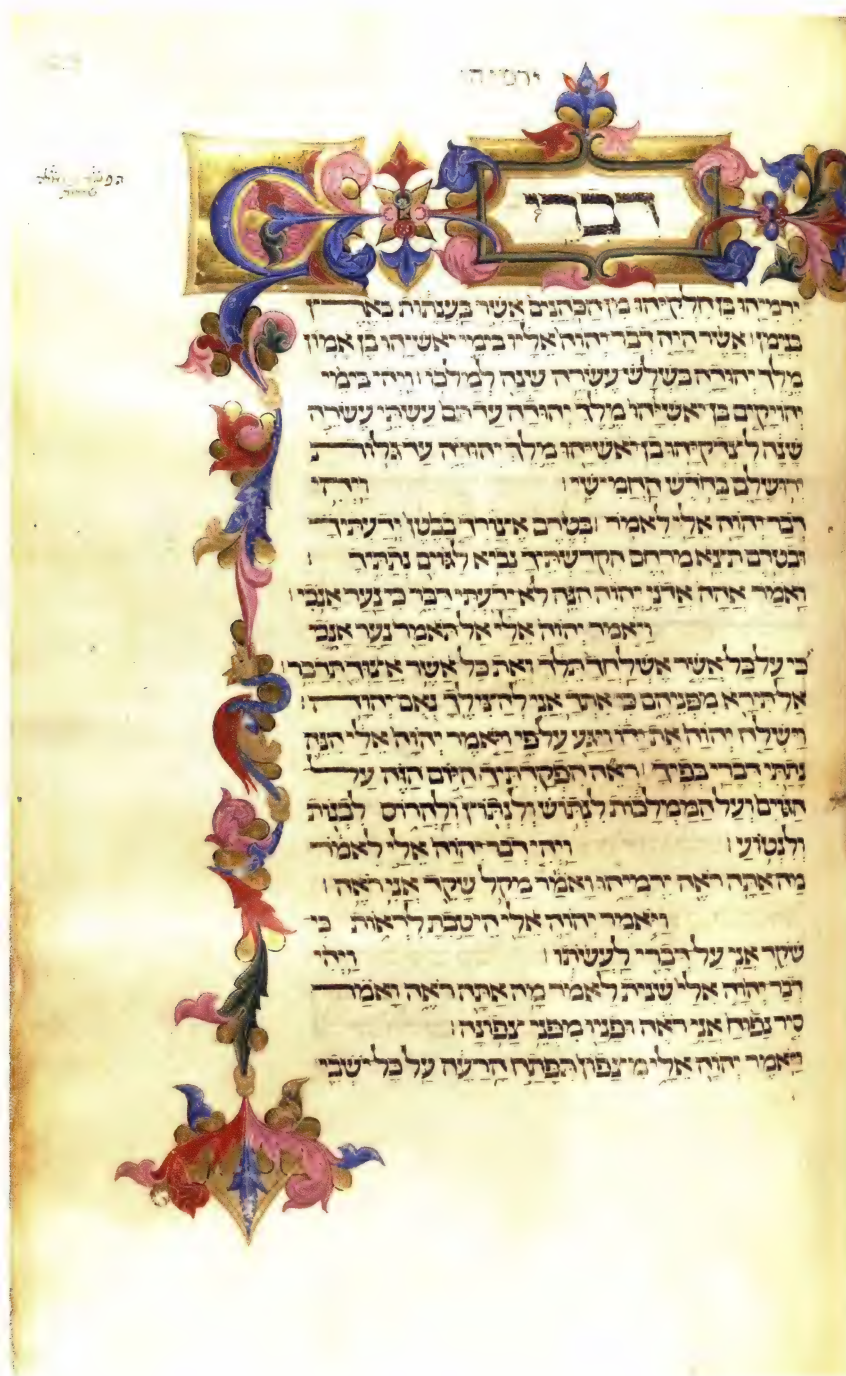 ירמיהו
דברי
ירמיהו בן חלקיהו מן הכהנים אשר בענתות בארץ
בנימן׃ אשר היה דבר יהוה אליו בימי יאשיהו בן אמון
מלך יהודה בשלש עשרה שנה למלכו׃ ויהי בימי
יהויקים בן יאשיהו מלך יהודה עד תם עשתי עשרה
שנה לצדקיהו בן יאשיהו מלך יהודה עד גלות
ירושלם בחדש החמישי׃ ויהי
דבר יהוה אלי לאמר׃ בטרם אצורך בבטן ידעתיך
ובטרם תצא מרחם הקדשתיך נביא לגוים נתתיך׃
ואמר אהה אדני יהוה הנה לא ידעתי דבר כי נער אנכי׃
ויאמר יהוה אלי אל תאמר נער אנכי
כי על כל אשר אשלחך תלך ואת כל אשר אצוך תדבר׃
אל תירא מפניהם כי אתך אני להצילך נאם יהוה׃
וישלח יהוה את ידו ויגע על פי ויאמר יהוה אלי הנה
נתתי דברי בפיך׃ ראה הפקדתיך היום הזה על
הגוים ועל הממלכות לנתוש ולנתוץ ולהרוס לבנות
ולנטוע׃ ויהי דבר יהוה אלי לאמר
מה אתה ראה ירמיהו ואמר מקל שקד אני ראה׃
ויאמר יהוה אלי היטבת לראות כי
שקד אני על דברי לעשתו׃ ויהי
דבר יהוה אלי שנית לאמר מה אתה ראה ואמר
סיר נפוח אני ראה ופניו מפני צפונה׃
ויאמר יהוה אלי מצפון תפתח הרעה על כל ישבי